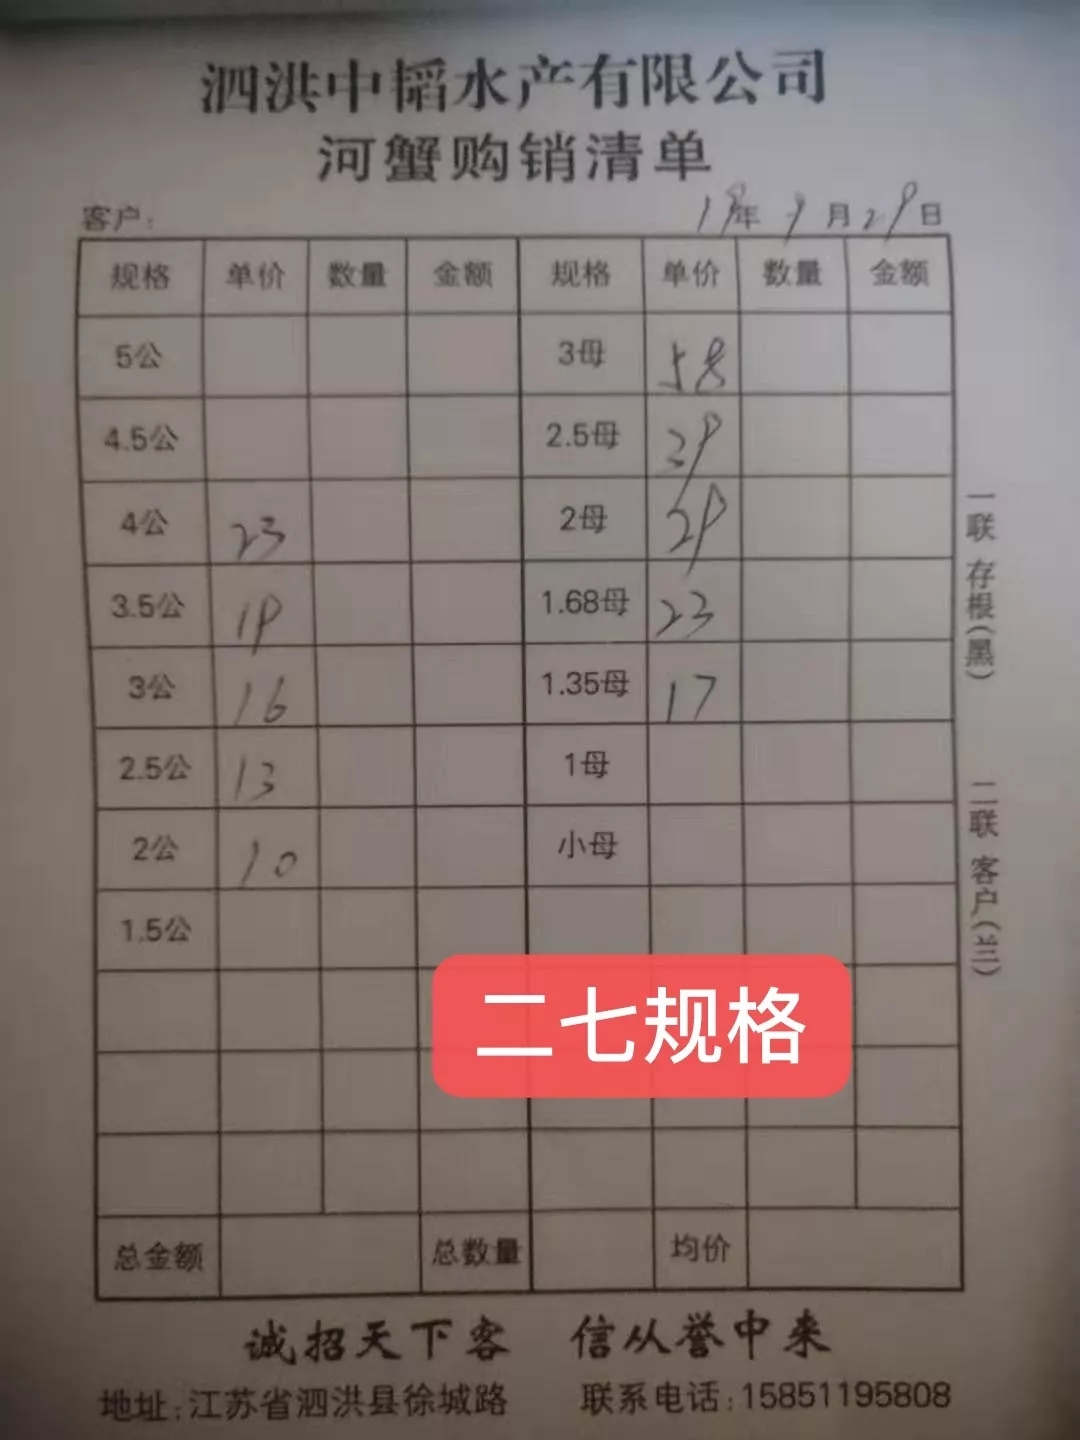 泗洪中韬水产有限公司
河蟹购销清单
客户: 19年 9月29日
规格 单价 数量 金额 规格 单价 数量 金额
5公 3母 58
4.5公 2.5母 39
4公 23 2母 29
3.5公 19 1.68母 23
3公 16 1.35母 17
2.5公 13 1母
2公 10 小母
1.5公
二七规格
总金额 总数量 均价
一联 存根(黑)
二联 客户(兰)
诚招天下客 信从誉中来
地址:江苏省泗洪县徐城路 联系电话:15851195808